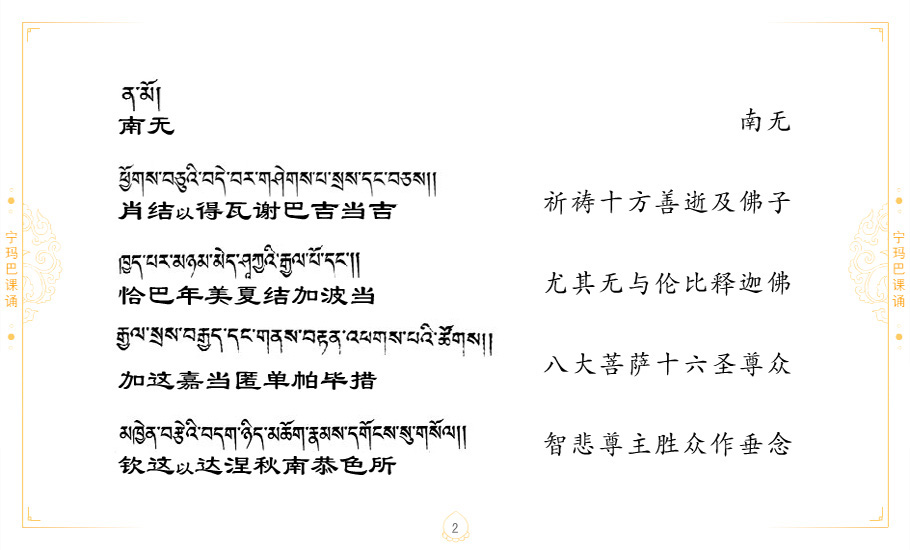 ན་མོ།
南无
南无
ཕྱོགས་བཅུའི་བདེ་བར་གཤེགས་པ་སྲས་དང་བཅས།།
肖结以得瓦谢巴吉当吉
祈祷十方善逝及佛子
ཁྱད་པར་མཉམ་མེད་ཤཱཀྱའི་རྒྱལ་པོ་དང་།།
恰巴年美夏结加波当
尤其无与伦比释迦佛
རྒྱལ་སྲས་བརྒྱད་དང་གནས་བརྟན་འཕགས་པའི་ཚོགས།།
加这嘉当匿单帕毕措
八大菩萨十六圣尊众
མཁྱེན་བརྩེའི་བདག་ཉིད་མཆོག་རྣམས་དགོངས་སུ་གསོལ།།
钦这以达涅秋南恭色所
智悲尊主胜众作垂念
宁玛巴课诵
宁玛巴课诵
2